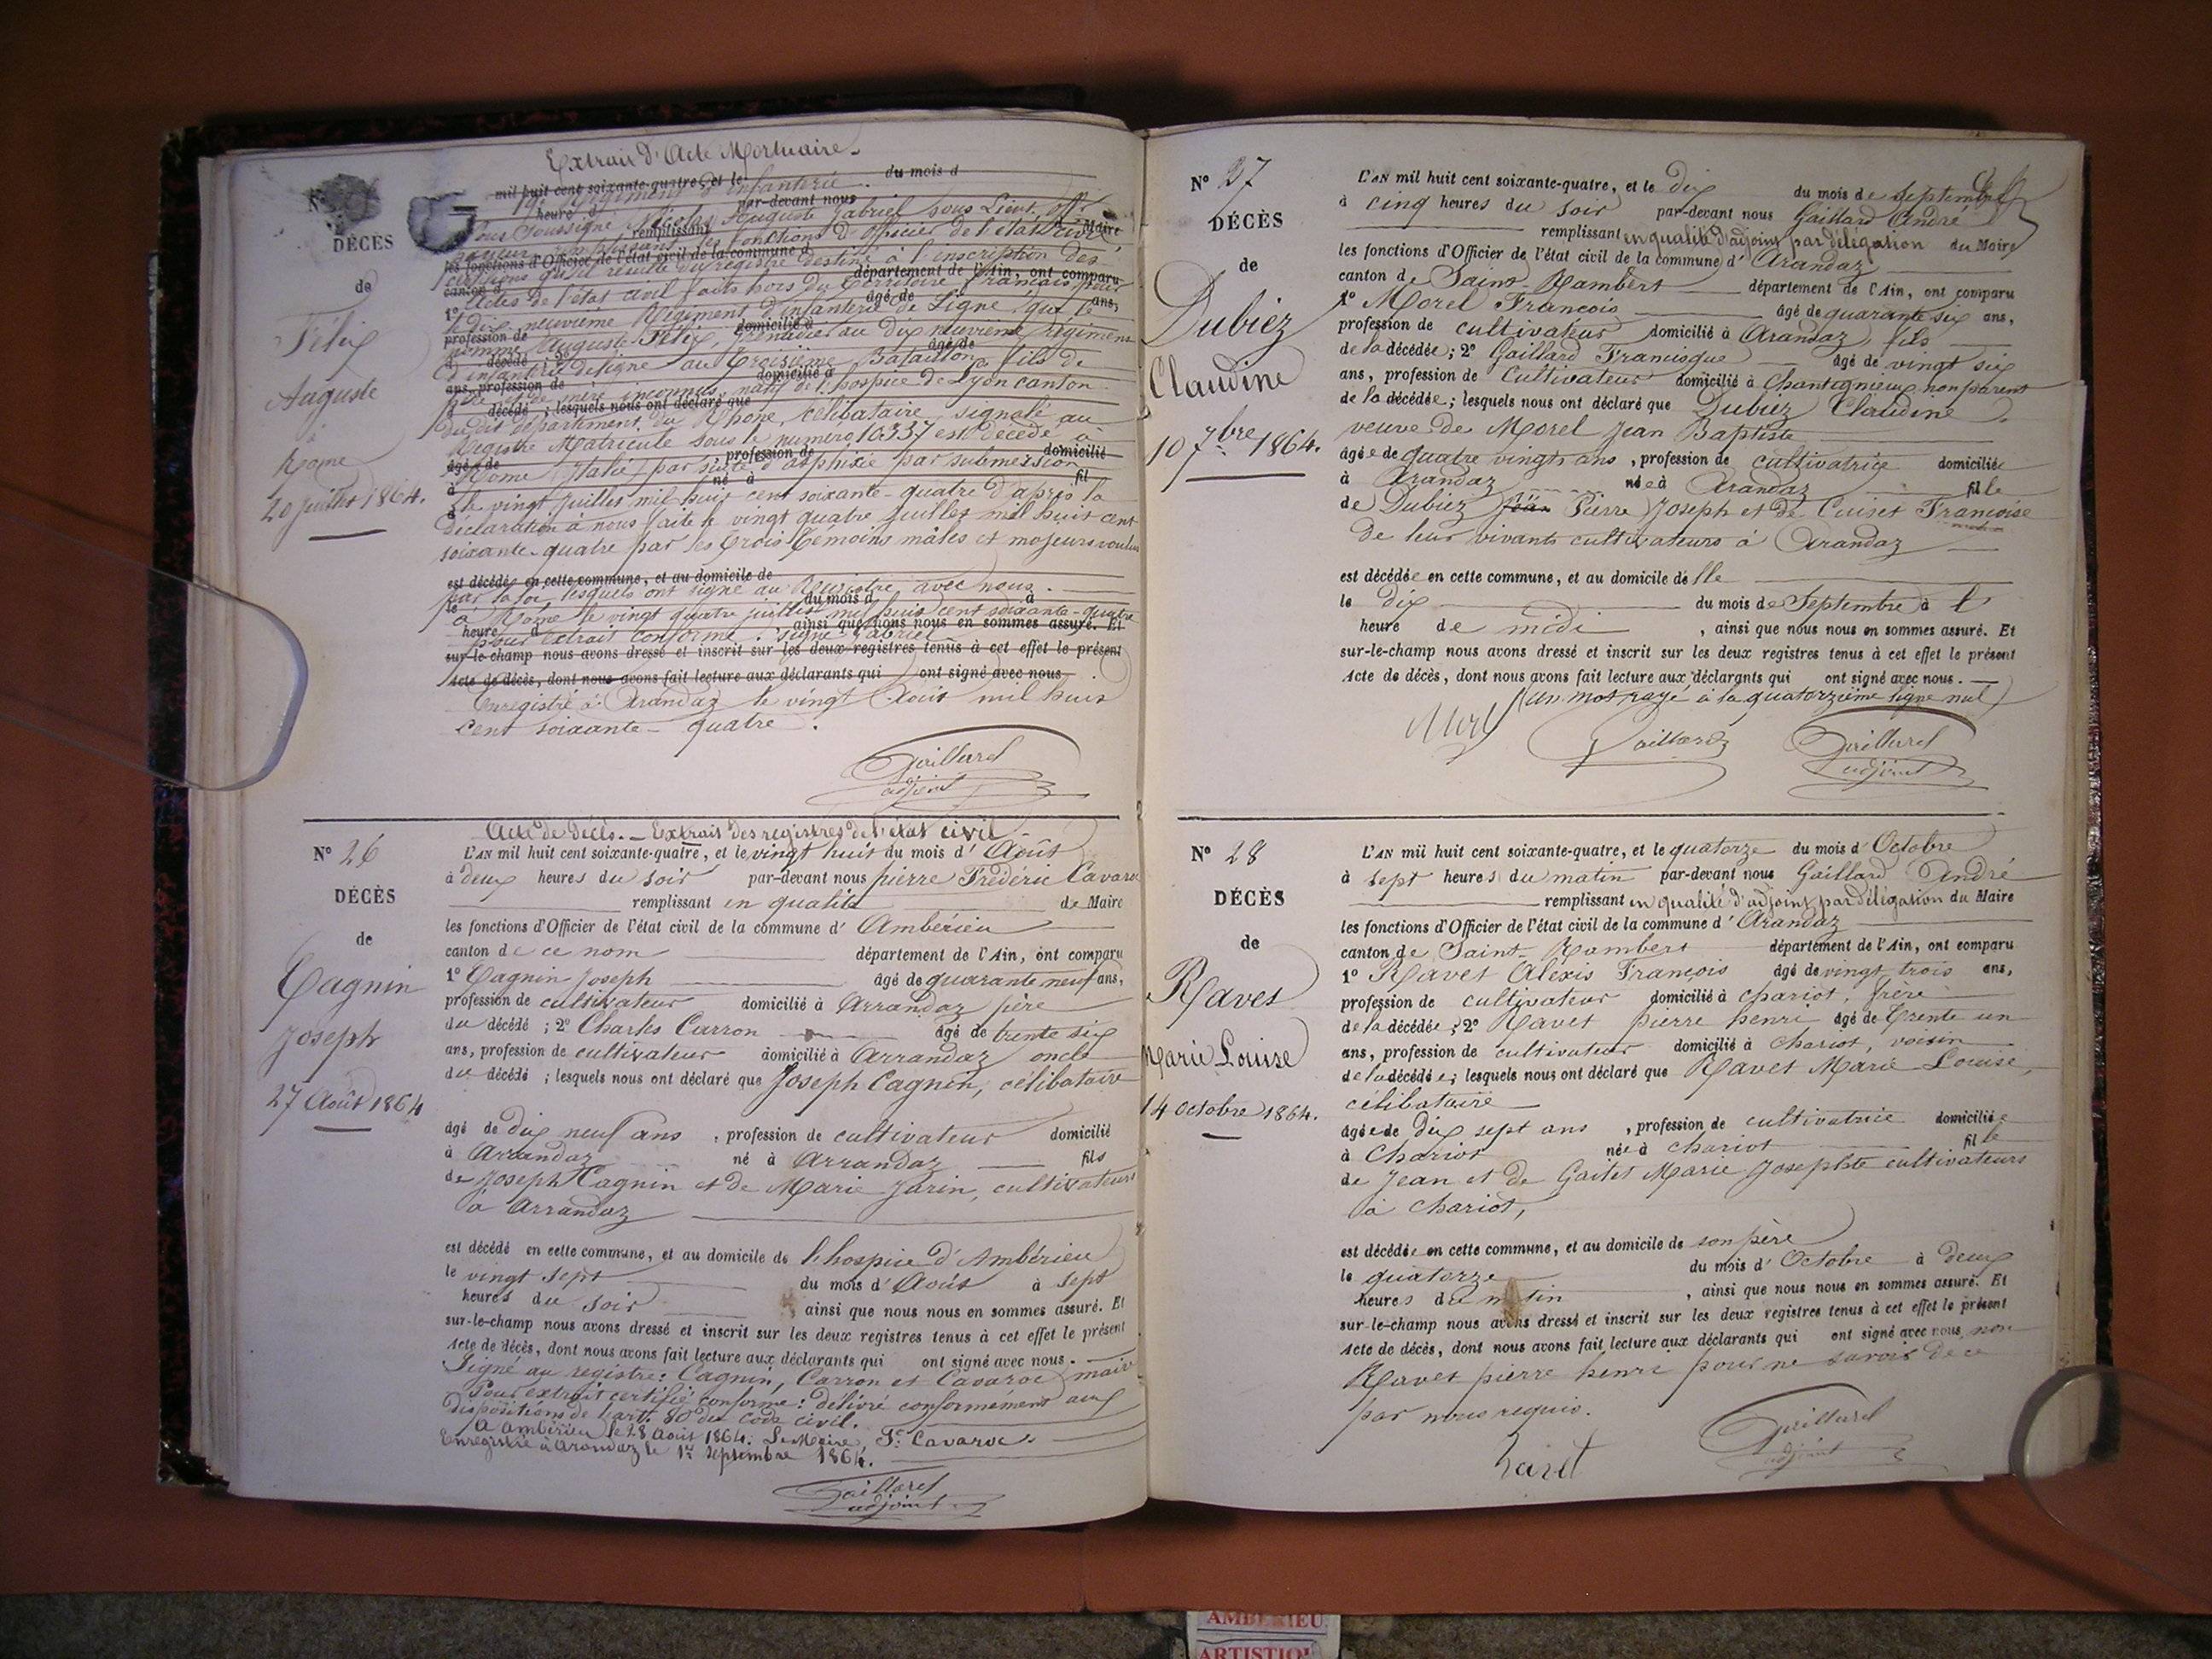 Extrait d'Acte Mortuaire.
mil huit cent soixante-quatre, et le du mois d
19e Régiment d'infanterie.
heure d par-devant nous
Nous soussigné Nicolas Auguste Gabriel sous Lieut. off.
remplissant Maire
payeur remplissant les fonctions d'officier de l'état civil
les fonctions d'Officier de l'état civil de la commune d
qu'il résulte du registre destiné à l'inscription des
canton d département de l'Ain, ont comparu
actes de l'état civil faits hors du territoire français pour
1º âgé de ans,
le dix-neuvième Régiment d'infanterie de Ligne que le
profession de domicilié à
nommé Auguste Félix, au dix neuvième régiment
d décédé ; 2º âgé de
d'infanterie de ligne au troisième Bataillon, fils de
ans, profession de domicilié à
père et de mère inconnus, natif de l'hospice de Lyon canton
d décédé ; lesquels nous ont déclaré que
du dit département du Rhône, célibataire, signalé au
Registre Matricule sous le numéro 10337 est décédé à
âgé de profession de domicilié
Rome (Italie) par suite d'asphixie par submersion
à né à fil
le vingt juillet mil huit cent soixante-quatre d'après la
déclaration à nous faite le vingt quatre juillet mil huit cent
soixante-quatre par les trois témoins mâles et majeurs voulus
est décédé en cette commune, et au domicile de
par la loi lesquels ont signé au Registre avec nous.
le du mois d à
à Rome le vingt quatre juillet mil huit cent soixante-quatre
heure d ainsi que nous nous en sommes assuré. Et
pour extrait conforme. signé Gabriel
sur-le-champ nous avons dressé et inscrit sur les deux registres tenus à cet effet le présent
Acte de décès, dont nous avons fait lecture aux déclarants qui ont signé avec nous
Enregistré à Arandaz le vingt Août mil huit
cent soixante-quatre.
Gaillard
adjoint
DÉCÈS
de
Félix
Auguste
à
Rome
20 juillet 1864.
Nº 26
DÉCÈS
de
Cagnin
Joseph
27 Août 1864
Acte de Décès. - Extrait des registres de l'état civil
L'AN mil huit cent soixante-quatre, et le vingt huit du mois d'Août
à deux heures du soir par-devant nous pierre Frédéric Cavaroc
remplissant en qualité de Maire
les fonctions d'Officier de l'état civil de la commune d'Ambérieu
canton de ce nom département de l'Ain, ont comparu
1º Cagnin Joseph âgé de quarante neuf ans,
profession de cultivateur domicilié à Arrandaz père
du décédé ; 2º Charles Carron âgé de trente six
ans, profession de cultivateur domicilié à Arrandaz oncle
du décédé ; lesquels nous ont déclaré que Joseph Cagnin, célibataire
âgé de dix neuf ans, profession de cultivateur domicilié
à Arrandaz né à Arrandaz fils
de Joseph Cagnin et de Marie Jarin, cultivateurs
à Arrandaz
est décédé en cette commune, et au domicile de l'hospice d'Ambérieu
le vingt sept du mois d'Août à sept
heures du soir ainsi que nous nous en sommes assuré. Et
sur-le-champ nous avons dressé et inscrit sur les deux registres tenus à cet effet le présent
Acte de décès, dont nous avons fait lecture aux déclarants qui ont signé avec nous.
Signé au registre: Cagnin, Carron et Cavaroc maire
Pour extrait certifié conforme: délivré conformément aux
dispositions de l'art. 80 du Code civil.
A Ambérieu le 28 Août 1864. Le Maire, F. Cavaroc
Enregistré à Arandaz le 1er septembre 1864.
Gaillard
adjoint
Nº 27
DÉCÈS
de
Dubiez
Claudine
10 7bre 1864.
L'AN mil huit cent soixante-quatre, et le dix du mois de septembre
à cinq heures du soir par-devant nous Gaillard André
remplissant en qualité d'adjoint par délégation du Maire
les fonctions d'Officier de l'état civil de la commune d'Arandaz
canton de Saint-Rambert département de l'Ain, ont comparu
1º Morel François âgé de quarante six ans,
profession de cultivateur domicilié à Arandaz, fils
de la décédée ; 2º Gaillard Francisque âgé de vingt six
ans, profession de cultivateur domicilié à Chantagnieux, non parent
de la décédée ; lesquels nous ont déclaré que Dubiez Claudine
veuve de Morel Jean Baptiste
âgée de quatre vingts ans, profession de cultivatrice domiciliée
à Arandaz née à Arandaz fille
de Dubiez Jean Pierre Joseph et de Cuiset Françoise
de leur vivants cultivateurs à Arandaz
est décédée en cette commune, et au domicile d'elle
le dix du mois de Septembre à l'
heure de midi, ainsi que nous nous en sommes assuré. Et
sur-le-champ nous avons dressé et inscrit sur les deux registres tenus à cet effet le présent
Acte de décès, dont nous avons fait lecture aux déclarants qui ont signé avec nous.
(un mot rayé à la quatorzième ligne nul)
Gaillard
Gaillard
adjoint
Nº 28
DÉCÈS
de
Ravet
Marie Louise
14 octobre 1864.
L'AN mil huit cent soixante-quatre, et le quatorze du mois d'Octobre
à sept heures du matin par-devant nous Gaillard André
remplissant en qualité d'adjoint par délégation du Maire
les fonctions d'Officier de l'état civil de la commune d'Arandaz
canton de Saint-Rambert département de l'Ain, ont comparu
1º Ravet Alexis François âgé de vingt trois ans,
profession de cultivateur domicilié à chariot, frère
de la décédée ; 2º Ravet pierre henri âgé de trente un
ans, profession de cultivateur domicilié à chariot, voisin
de la décédée ; lesquels nous ont déclaré que Ravet Marie Louise,
célibataire
âgée de dix sept ans, profession de cultivatrice domiciliée
à Chariot née à chariot fille
de Jean et de Gaitet Marie Josephte cultivateurs
à chariot,
est décédée en cette commune, et au domicile de son père
le quatorze du mois d'Octobre à deux
heures du matin, ainsi que nous nous en sommes assuré. Et
sur-le-champ nous avons dressé et inscrit sur les deux registres tenus à cet effet le présent
Acte de décès, dont nous avons fait lecture aux déclarants qui ont signé avec nous, non
Ravet pierre henri pour ne savoir de ce
par nous requis.
Ravet
Gaillard
adjoint
AMBERIEU
ARTISTIQ